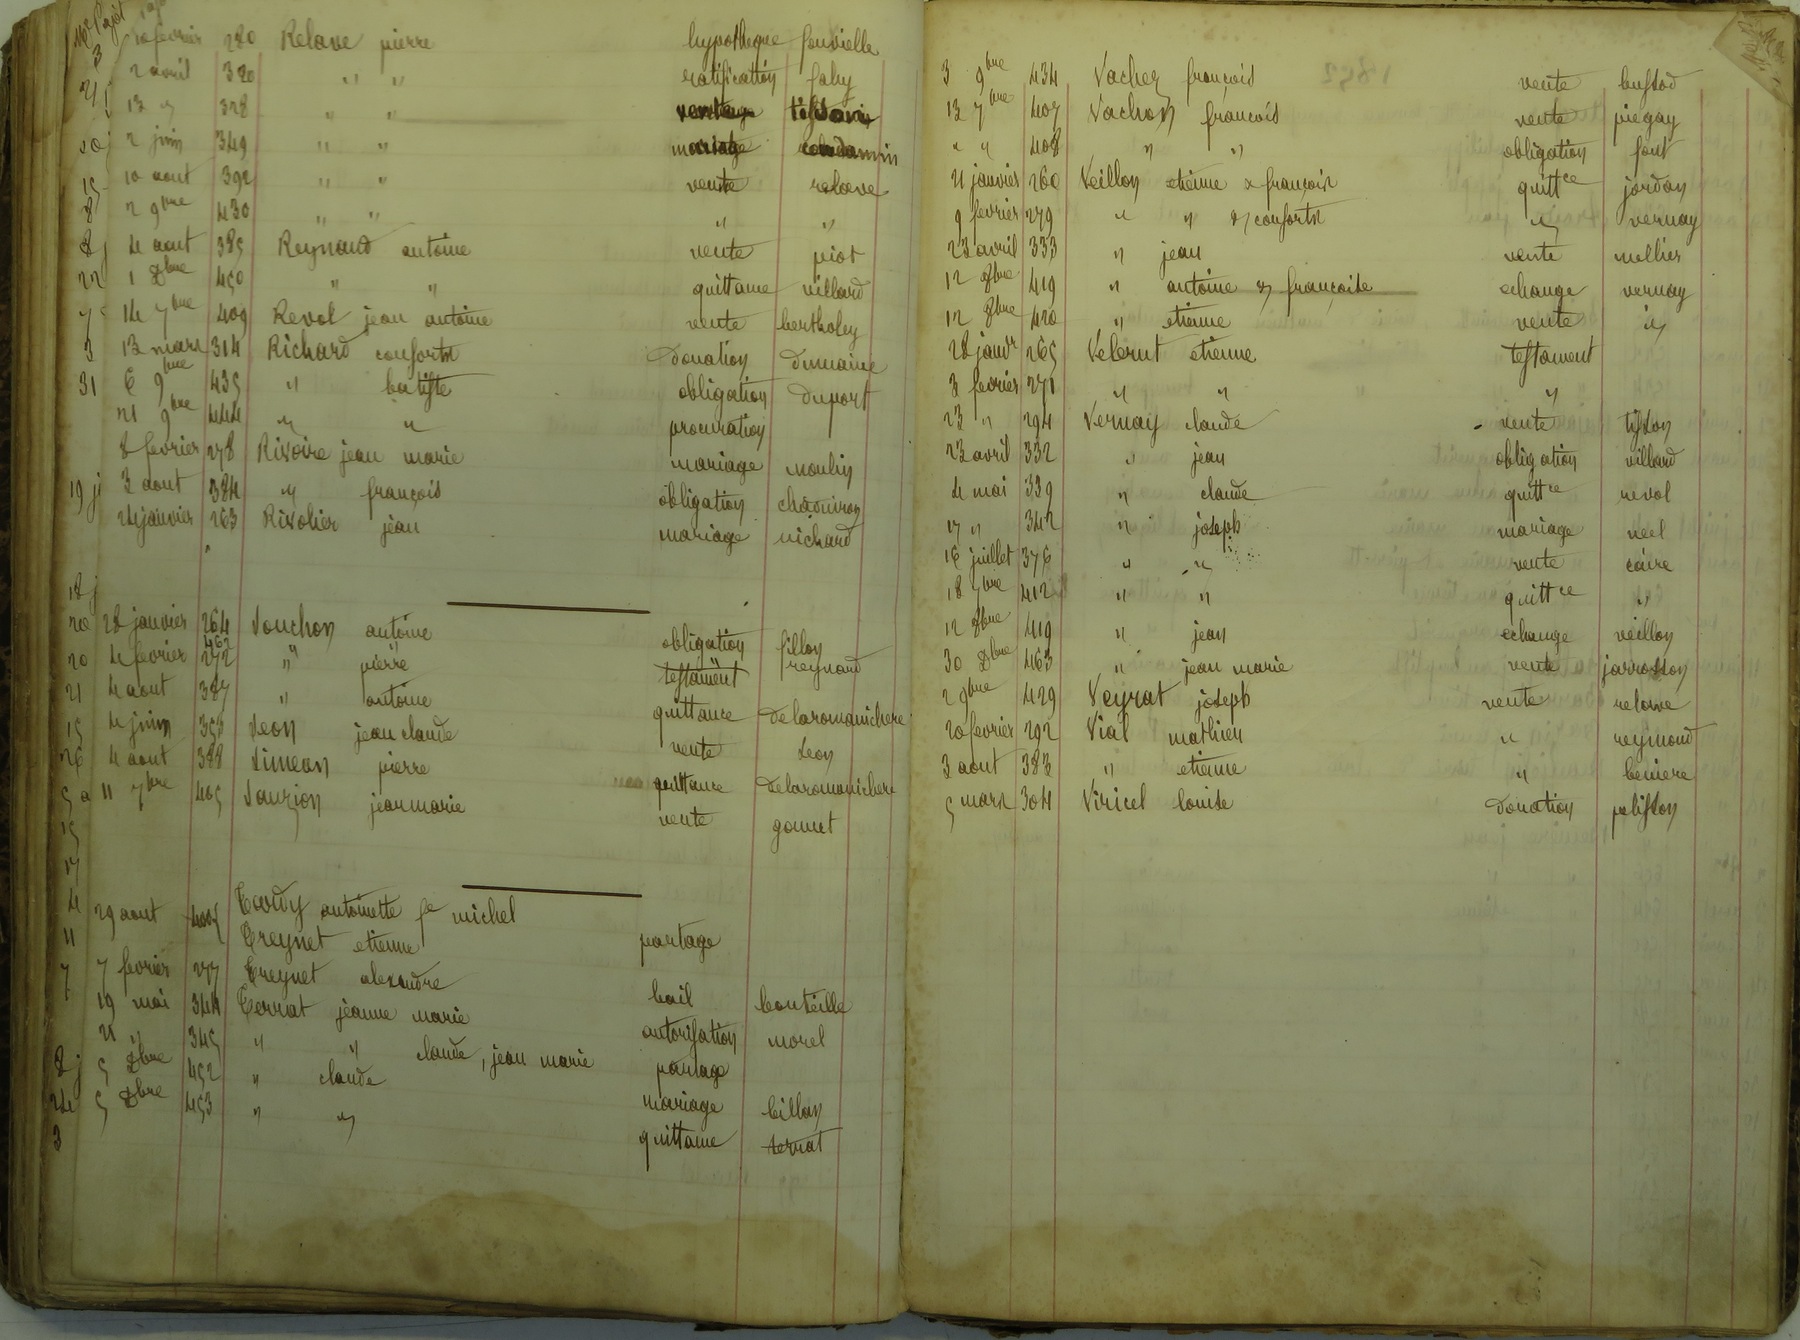 Mᵉ Pajot
3 10 fevrier 280 Relave pierre hypotheque fonvielle
21 2 avril 320 " " ratification fahy
13 " 328 " "
20 j 2 juin 349 " " mariage
15 10 aout 392 " " vente relave
8 2 9bre 430 " " " "
8 j 4 aout 385 Reynaud antoine vente piot
22 1 Xbre 450 " " quittance villard
14 7bre 409 Revol jean antoine vente bertholey
3 13 mars 314 Richard conforts donation dumaine
31 6 9bre 435 " batiste obligation duport
21 9bre 444 " " procuration
8 fevrier 278 Rivoire jean marie mariage moulin
19 j 3 aout 384 " françois obligation chaduiron
24 janvier 263 Rivolier jean mariage richard
18 j
20 28 janvier 264 Souchon antoine obligation fillon
20 4 fevrier 462 272 " pierre testament reynaud
21 4 aout 387 " antoine quittance delaromanichere
15 4 juin 350 Seon jean claude vente seon
26 4 aout 388 Simeon pierre quittance delaromanichere
5 a 11 7bre 405 Sauzion jean marie vente gonnet
15
17
4 29 aout 400 Tardy antoinette fe michel partage
11 Treynet etienne
7 7 fevrier 277 Treynet alexandre bail bouteille
19 mai 344 Terrat jeanne marie autorisation morel
21 " 345 " " claude, jean marie partage
8 j 5 Xbre 452 " claude mariage billon
24 5 Xbre 453 " " quittance terrat
3
3 9bre 434 Vachez françois vente bussod
13 7bre 407 Vachon françois vente piegay
" " 408 " " obligation font
21 janvier 260 Veillon etienne & françois quittce jordan
9 fevrier 279 " " & conforts " vernay
23 avril 333 " jean vente mellier
12 8bre 419 " antoine & françoise echange vernay
12 8bre 420 " etienne vente "
28 janvr 265 Velerut etienne testament
3 fevrier 271 " " "
23 " 294 Vernay claude vente tisson
23 avril 332 " jean obligation villard
4 mai 339 " claude quittce revol
17 " 342 " joseph mariage neel
16 juillet 376 " " vente caire
18 7bre 412 " " quittce "
12 8bre 419 " jean echange veillon
30 Xbre 463 " jean marie vente jarrosson
2 9bre 429 Veyrat joseph vente relave
20 fevrier 292 Vial mathieu " reymond
3 aout 383 " etienne " beniere
5 mars 304 Viricel louise donation pelisson